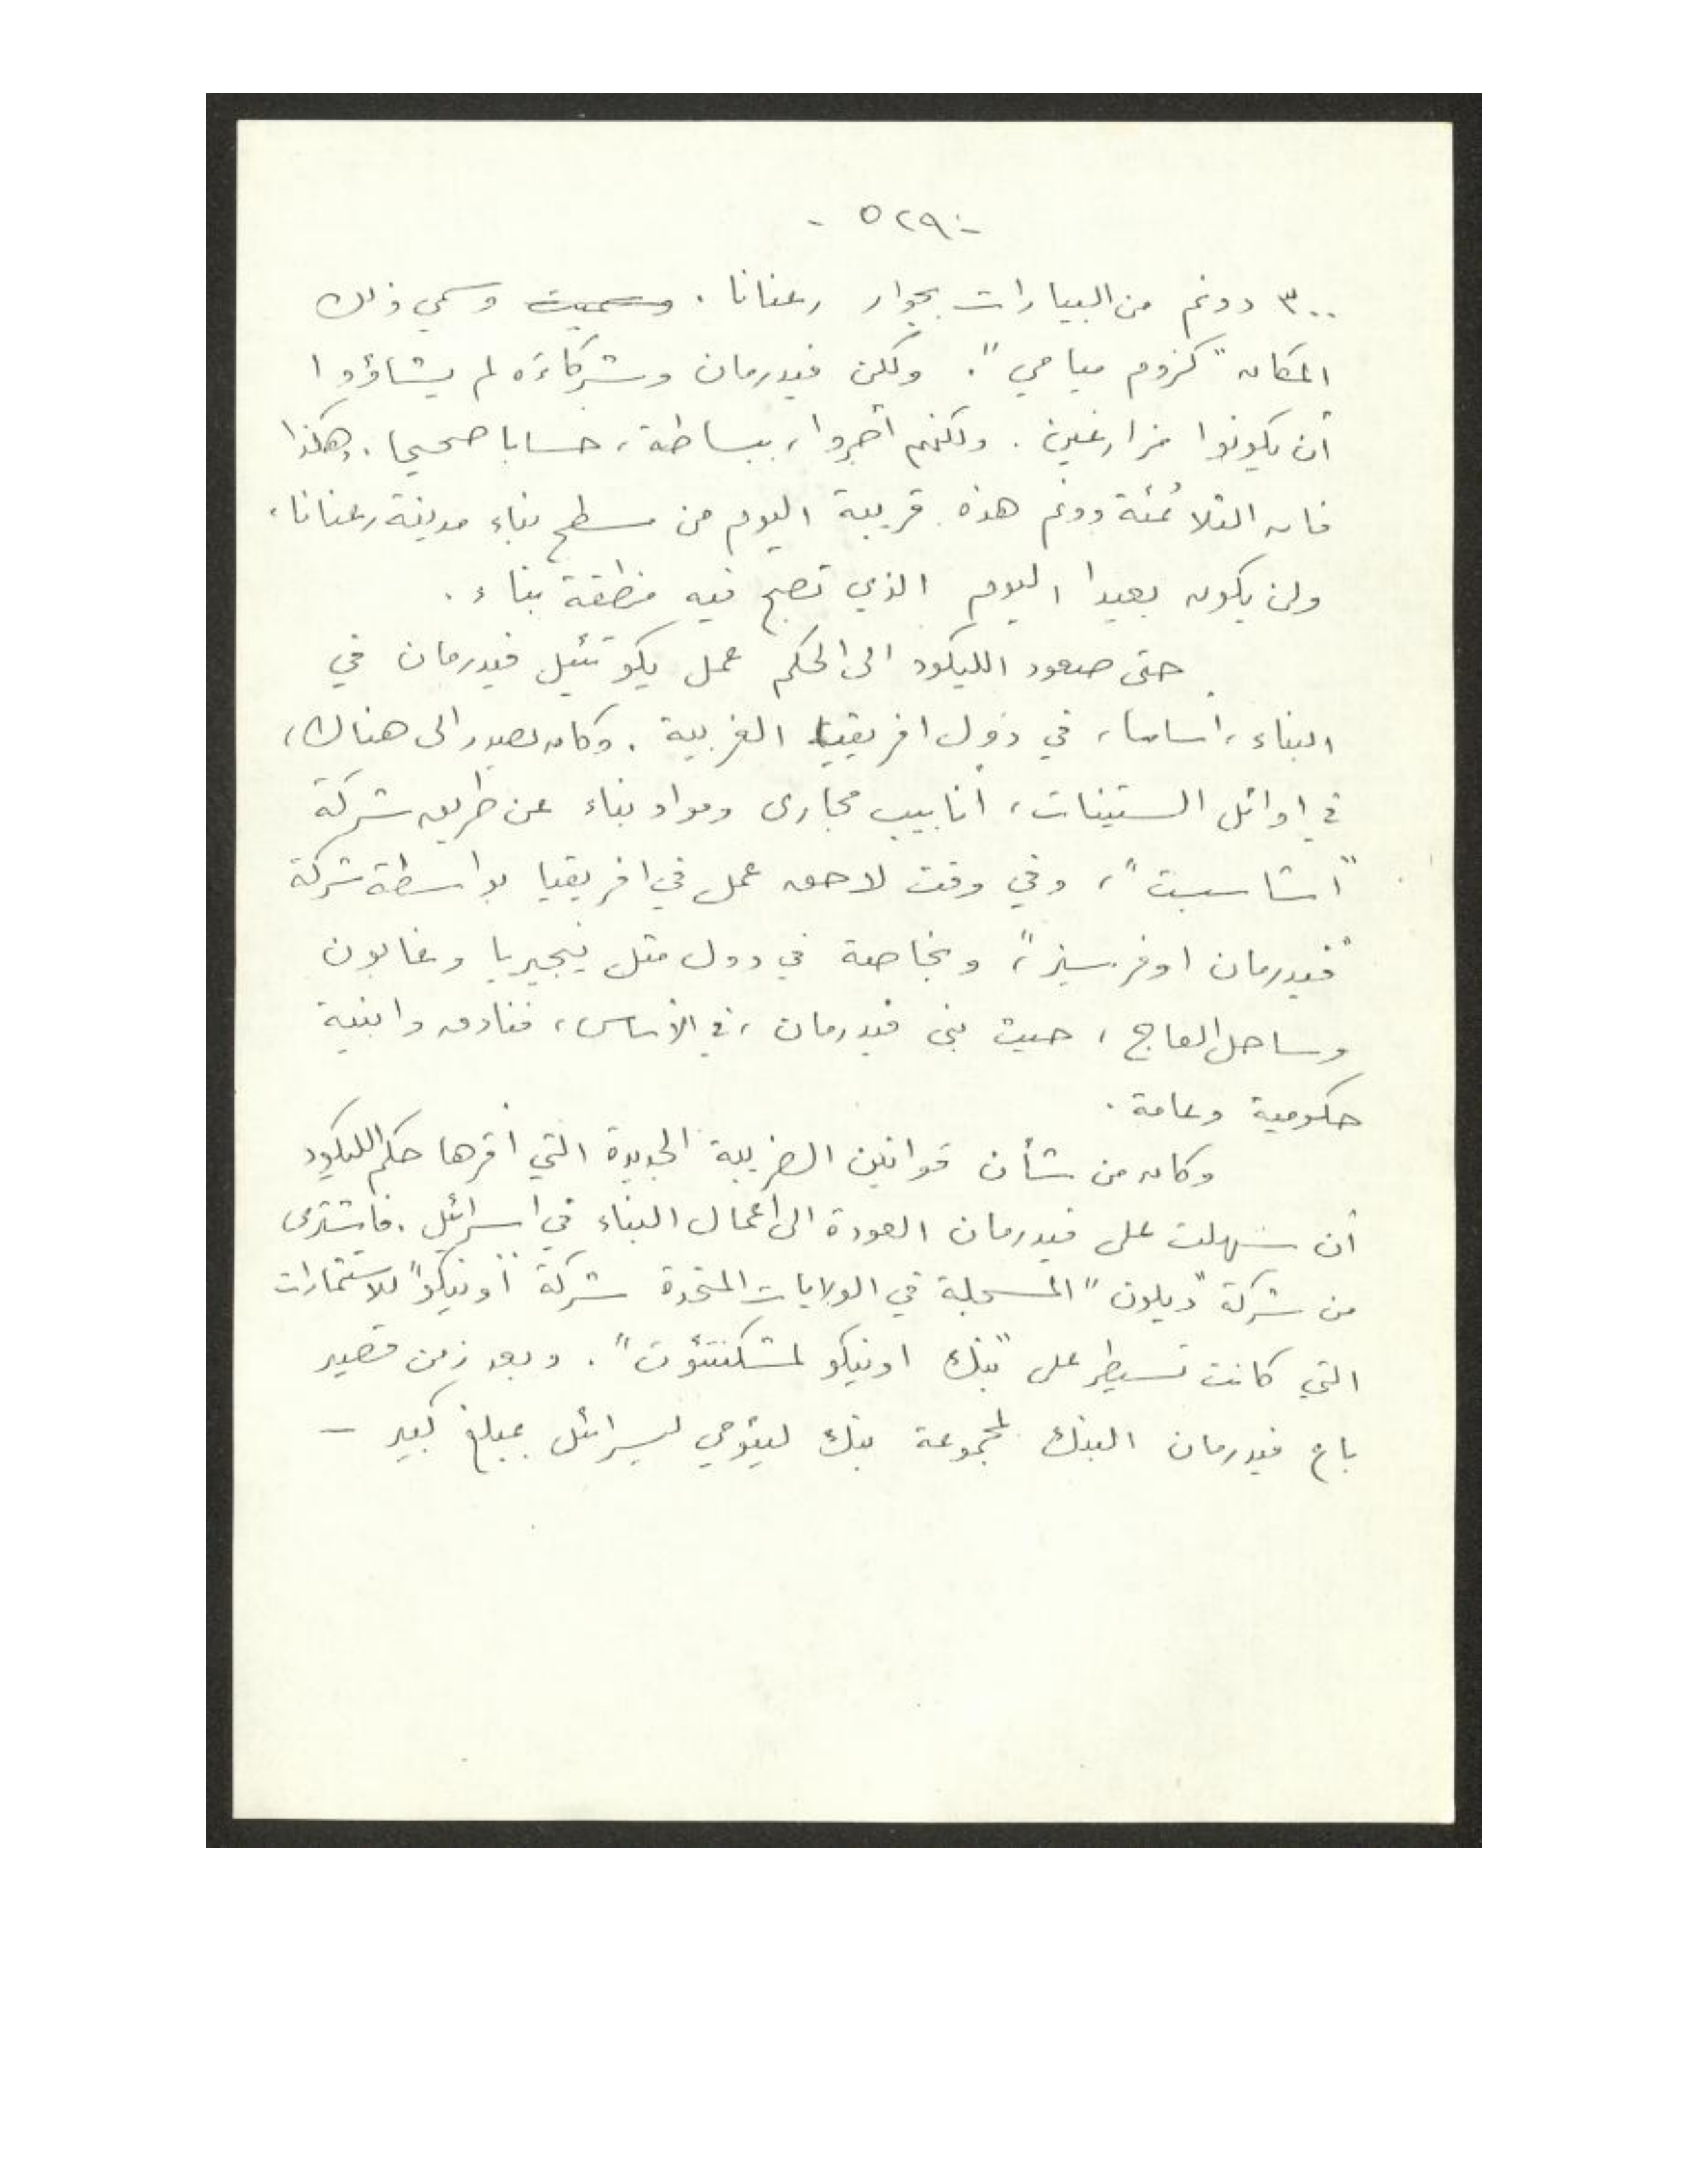 - ٥٢٩ -
٣٠٠ دونم من البيارات بجوار رعنانا . وسميت وسمي ذلك
المكان "كروم ميامي". ولكن فيدرمان وشركاءه لم يشاؤوا
أن يكونوا مزارعين . ولكنهم أجروا، ببساطة، حسابا صحيحا. وهكذا
فان الثلاثمئة دونم هذه قريبة اليوم من مسطح بناء مدينة رعنانا،
ولن يكون بعيدا اليوم الذي تصبح فيه منطقة بناء .
حتى صعود الليكود الى الحكم عمل يكوتئيل فيدرمان في
البناء، أساسا، في دول افريقيا الغربية . وكان يصدر الى هناك،
في اوائل الستينات، أنابيب مجارى ومواد بناء عن طريق شركة
"أشاسبت"، وفي وقت لاحق عمل في افريقيا بواسطة شركة
"فيدرمان اوفرسيز"، وبخاصة في دول مثل نيجيريا وغابون
وساحل العاج ، حيث بنى فيدرمان ، في الأساس، فنادق وابنية
حكومية وعامة .
وكان من شأن قوانين الضريبة الجديدة التي أقرها حكم الليكود
أن سهلت على فيدرمان العودة الى أعمال البناء في اسرائيل . فاشترى
من شركة "ديلون" المسجلة في الولايات المتحدة شركة "أونيكو" للاستثمارات
التي كانت تسيطر على "بنك اونيكو لمشكنتؤوت". وبعد زمن قصير
باع فيدرمان البنك لمجموعة بنك ليئومي ليسرائيل بمبلغ كبير –